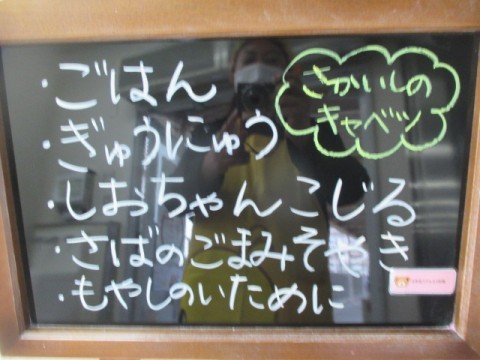 ・ごはん
・ぎゅうにゅう
・しおちゃんこじる
・さばのごまみそやき
・もやしのいために
さかいしの
キャベツ